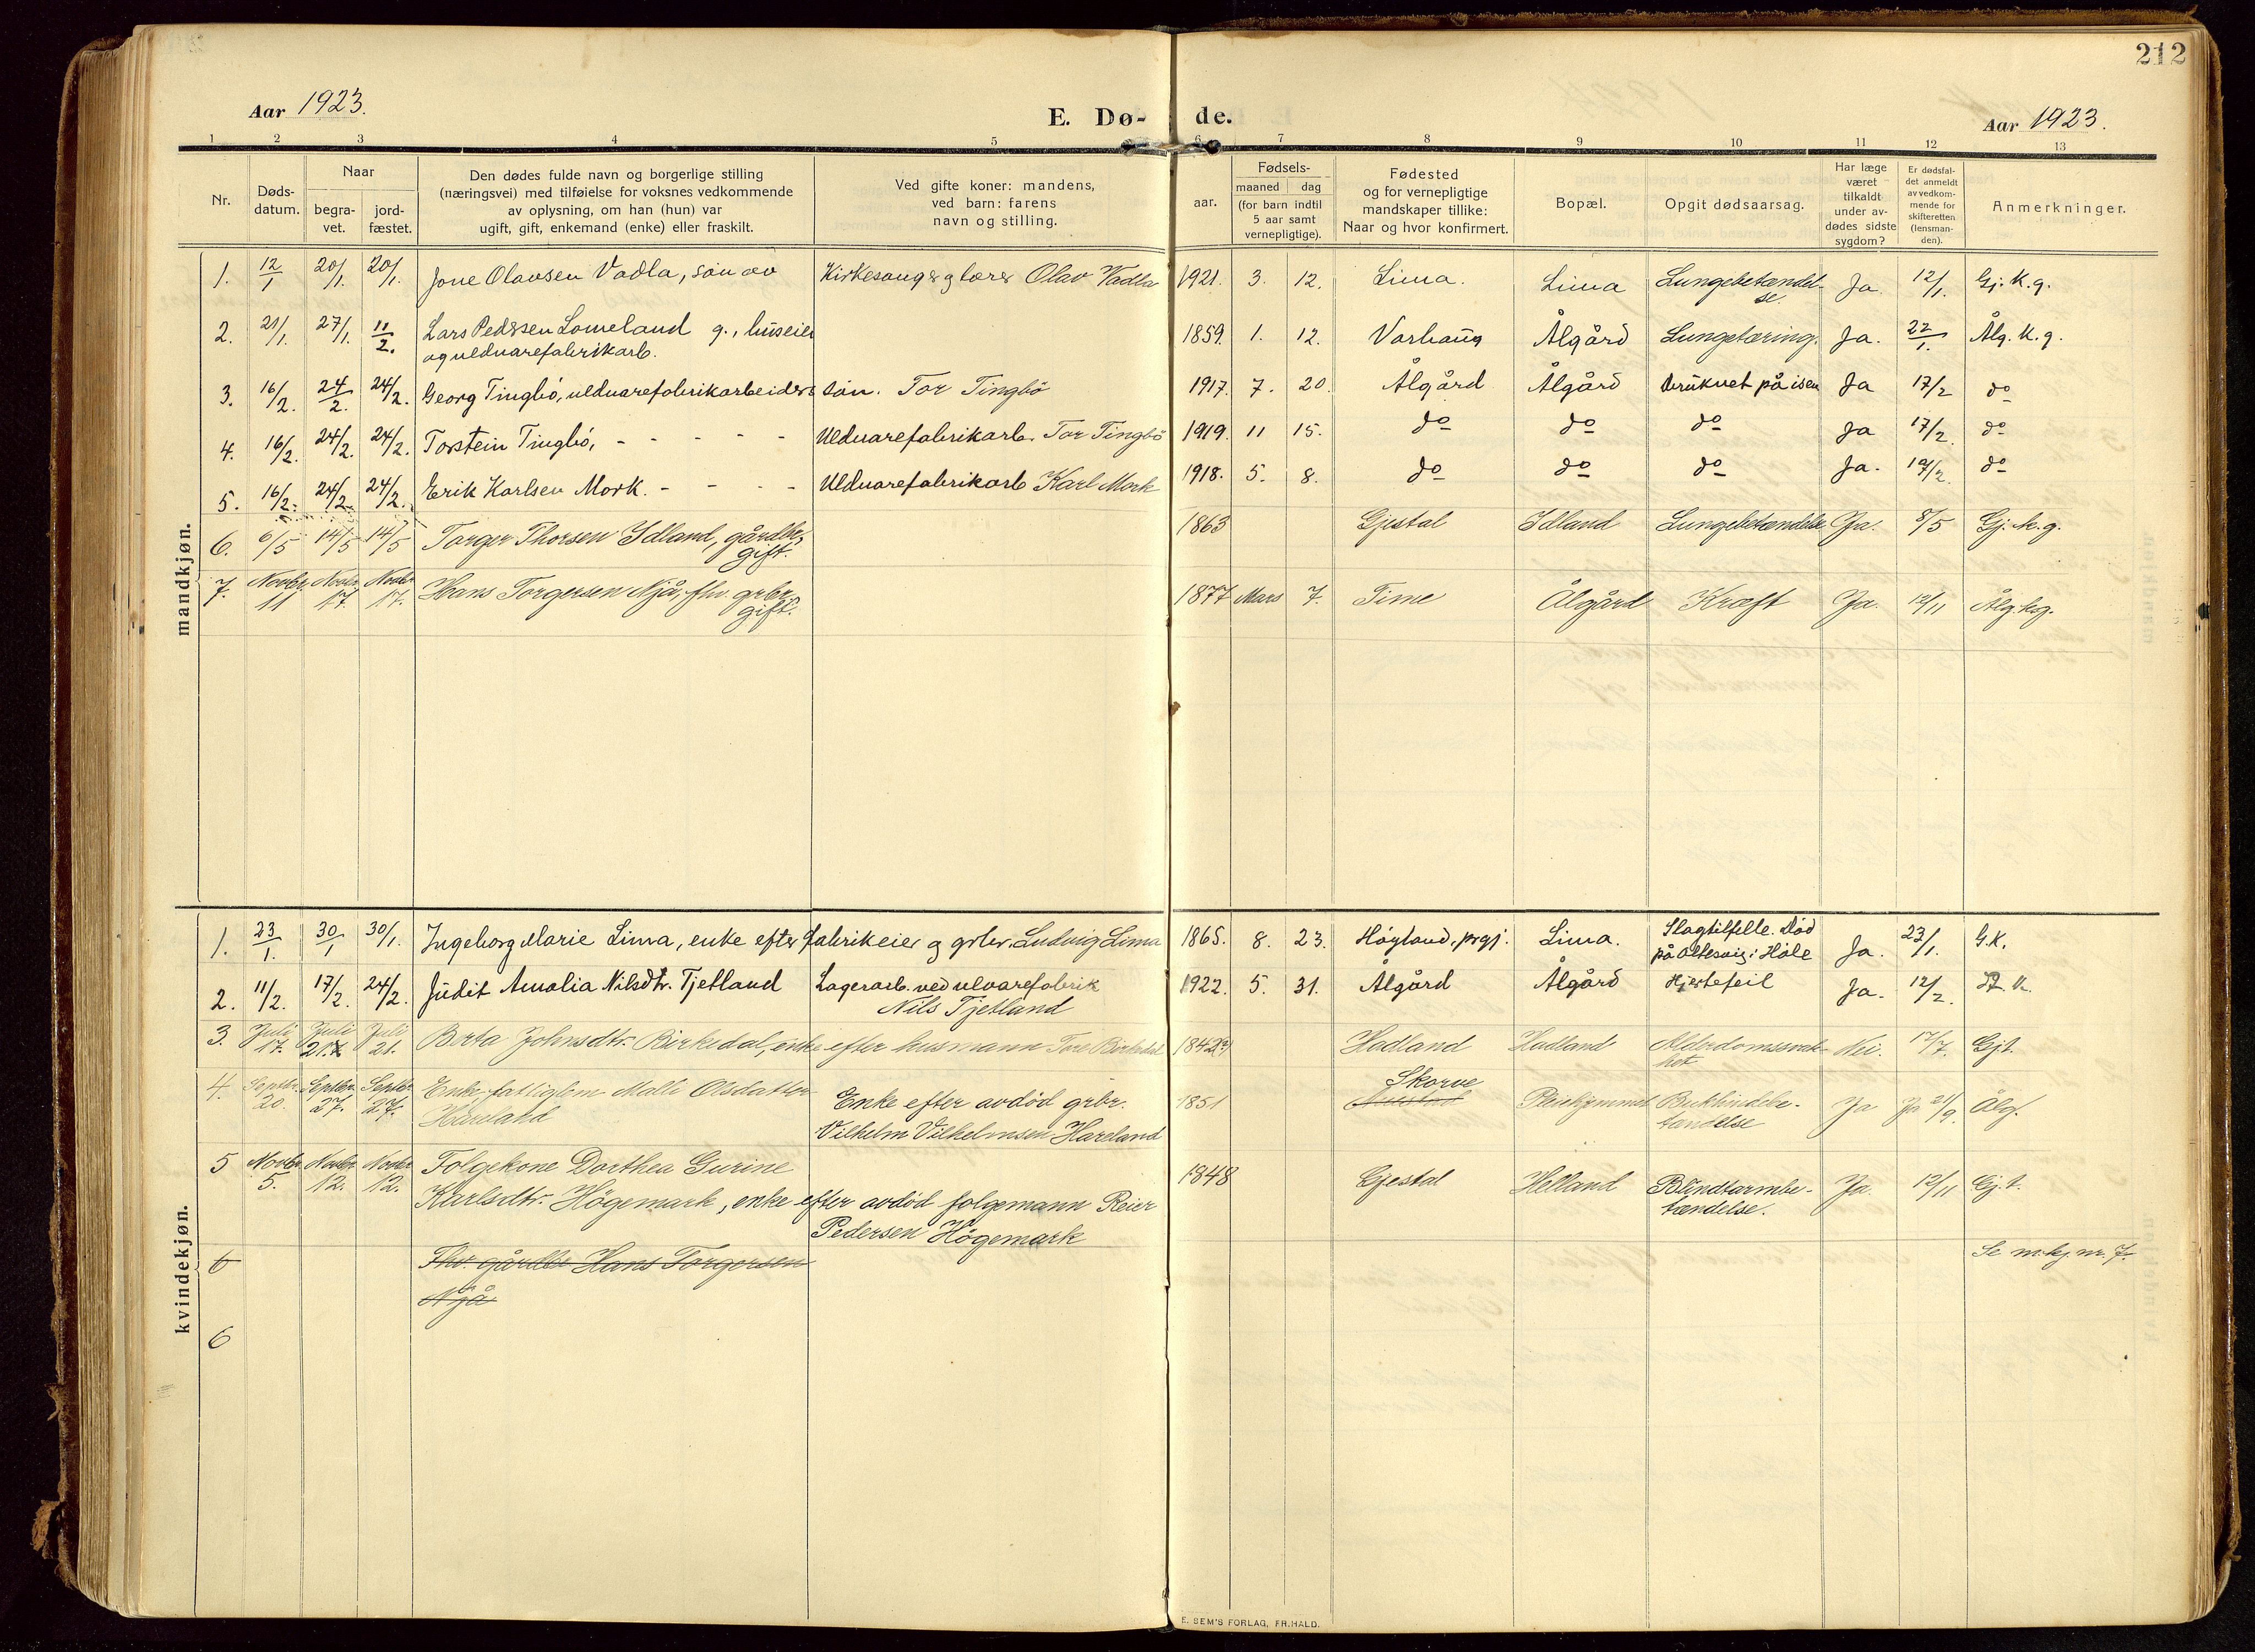 212
Aar 1923.
E. Dø- de.
Aar 1923.
1 2 3 4 5 6 7 8 9 10 11 12 13
Nr.
Døds-
datum.
Naar
begra-
vet.
jord-
fæstet.
Den dødes fulde navn og borgerlige stilling
(næringsvei) med tilføielse for voksnes vedkommende
av oplysning, om han (hun) var
ugift, gift, enkemand (enke) eller fraskilt.
Ved gifte koner: mandens,
ved barn: farens
navn og stilling.
Fødsels-
aar.
maaned
dag
(for barn indtil
5 aar samt
vernepligtige).
Fødested
og for vernepligtige
mandskaper tillike:
Naar og hvor konfirmert.
Bopæl.
Opgit dødsaarsag.
Har læge
været
tilkaldt
under av-
dødes sidste
sygdom?
Er dødsfal-
det anmeldt
av vedkom-
mende for
skifteretten
(lensman-
den).
Anmerkninger.
mandkjøn.
1. 12/1 20/1. 20/1. Jone Olavsen Vadla, søn av Kirkesanger og lærer Olav Vadla 1921. 3. 12. Lima. Lima Lungebetændel-
se. Ja. 12/1. Gj. K. g.
2. 21/1. 27/1. 11/2. Lars Pedersen Lomeland g., huseier
og ulldvarefabrikarb. 1859. 1. 12. Varhaug Ålgård Lungetæring. Ja. 22/1. Ålg. K. g.
3. 16/2. 24/2. 24/2. Georg Tingbö, uldvarefabrikarbeiders søn. Tor Tingbö 1917. 7. 20. Ålgård Ålgård Druknet på isen Ja 17/2 do
4. 16/2. 24/2. 24/2. Torstein Tingbö, - - - - - Uldvarefabrikarb. Tor Tingbö 1919. 11 15. do do do Ja 17/2. do
5. 16/2. 24/2. 24/2. Erik Karlsen Mork. - - - - Uldvarefabrikarb Karl Mork 1918. 5. 8. do do do Ja. 17/2. do
6. 6/5 14/5 14/5 Torger Thorsen Idland, gårdbr.
gift. 1863 Gjestal Idland Lungebetændelse Ja. 8/5 Gj. k. g.
7. Novbr. 11 Novbr. 17. Novbr 17. Hans Torgersen Njå, fhv. grbr.
gift. 1877 Mars 7. Time Ålgård Kræft Ja. 12/11 Ålg. kg.
kvindekjøn.
1. 23/1. 30/1 30/1. Ingeborg Marie Lima, enke efter fabrikeier og grbr. Ludvig Lima 1865. 8. 23. Høyland, prgj. Lima. Slagtilfelle. Død
på Oltesvig i Høle Ja. 23/1. G.K.
2. 11/2. 17/2. 24/2. Judit Amalia Nilsdtr. Tjetland Lagerarb. ved ulvarefabrik
Nils Tjetland 1922. 5. 31. Ålgård Ålgård Hjertefeil Ja. 12/2. K.
3. Juli 17. Juli 21. Juli 21. Berta Johnsdtr. Birkedal, enke efter husmann Tore Birkedal 1842 Hadland Hadland Alderdomssvak-
het Nei. 17/7. Gjt.
4. Septbr. 20. Septbr. 27. Septbr. 27. Enke, fattiglem Malli Olsdatter
Harland Enke efter avdød grbr.
Vilhelm Vilhelmsen Hareland 1851 Skorve Pleiehjemmet Bukhindebe-
tændelse Ja Ja 21/9. Ålg.
5 Novbr. 5. Novbr. 12. Novbr 12. Folgekone Dorthea Gurine
Karlsdtr. Högemark, enke efter avdød folgemann Reier
Pedersen Högemark 1848 Gjestal Helland Blindtarmbe-
tændelse. Ja. 12/11 Gj.t.
6 Fhv gårdbr Hans Torgersen
Njå. Se m.kj. nr. 7.
6
E. SEM'S FORLAG, FR.HALD.